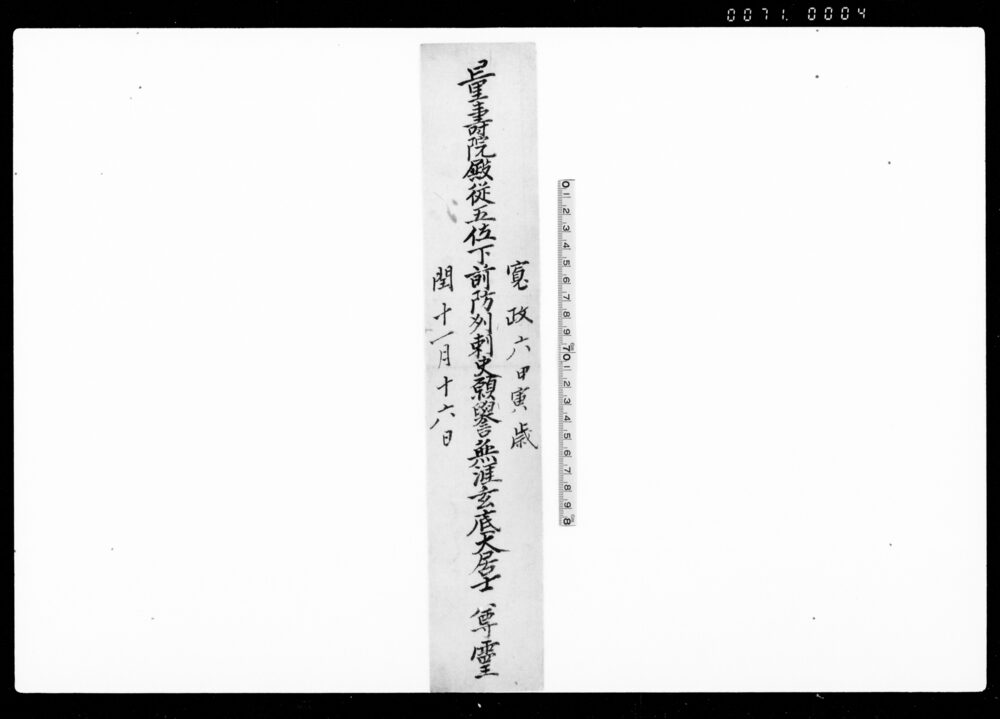 0071. 0004
寛政六甲寅歳
量壽院殿従五位下前防列刺史願譽無涯玄底大居士 尊靈
閏十一月十六日
0 1 2 3 4 5 6 7 8 9 10 1 2 3 4 5 6 7 8 9 8